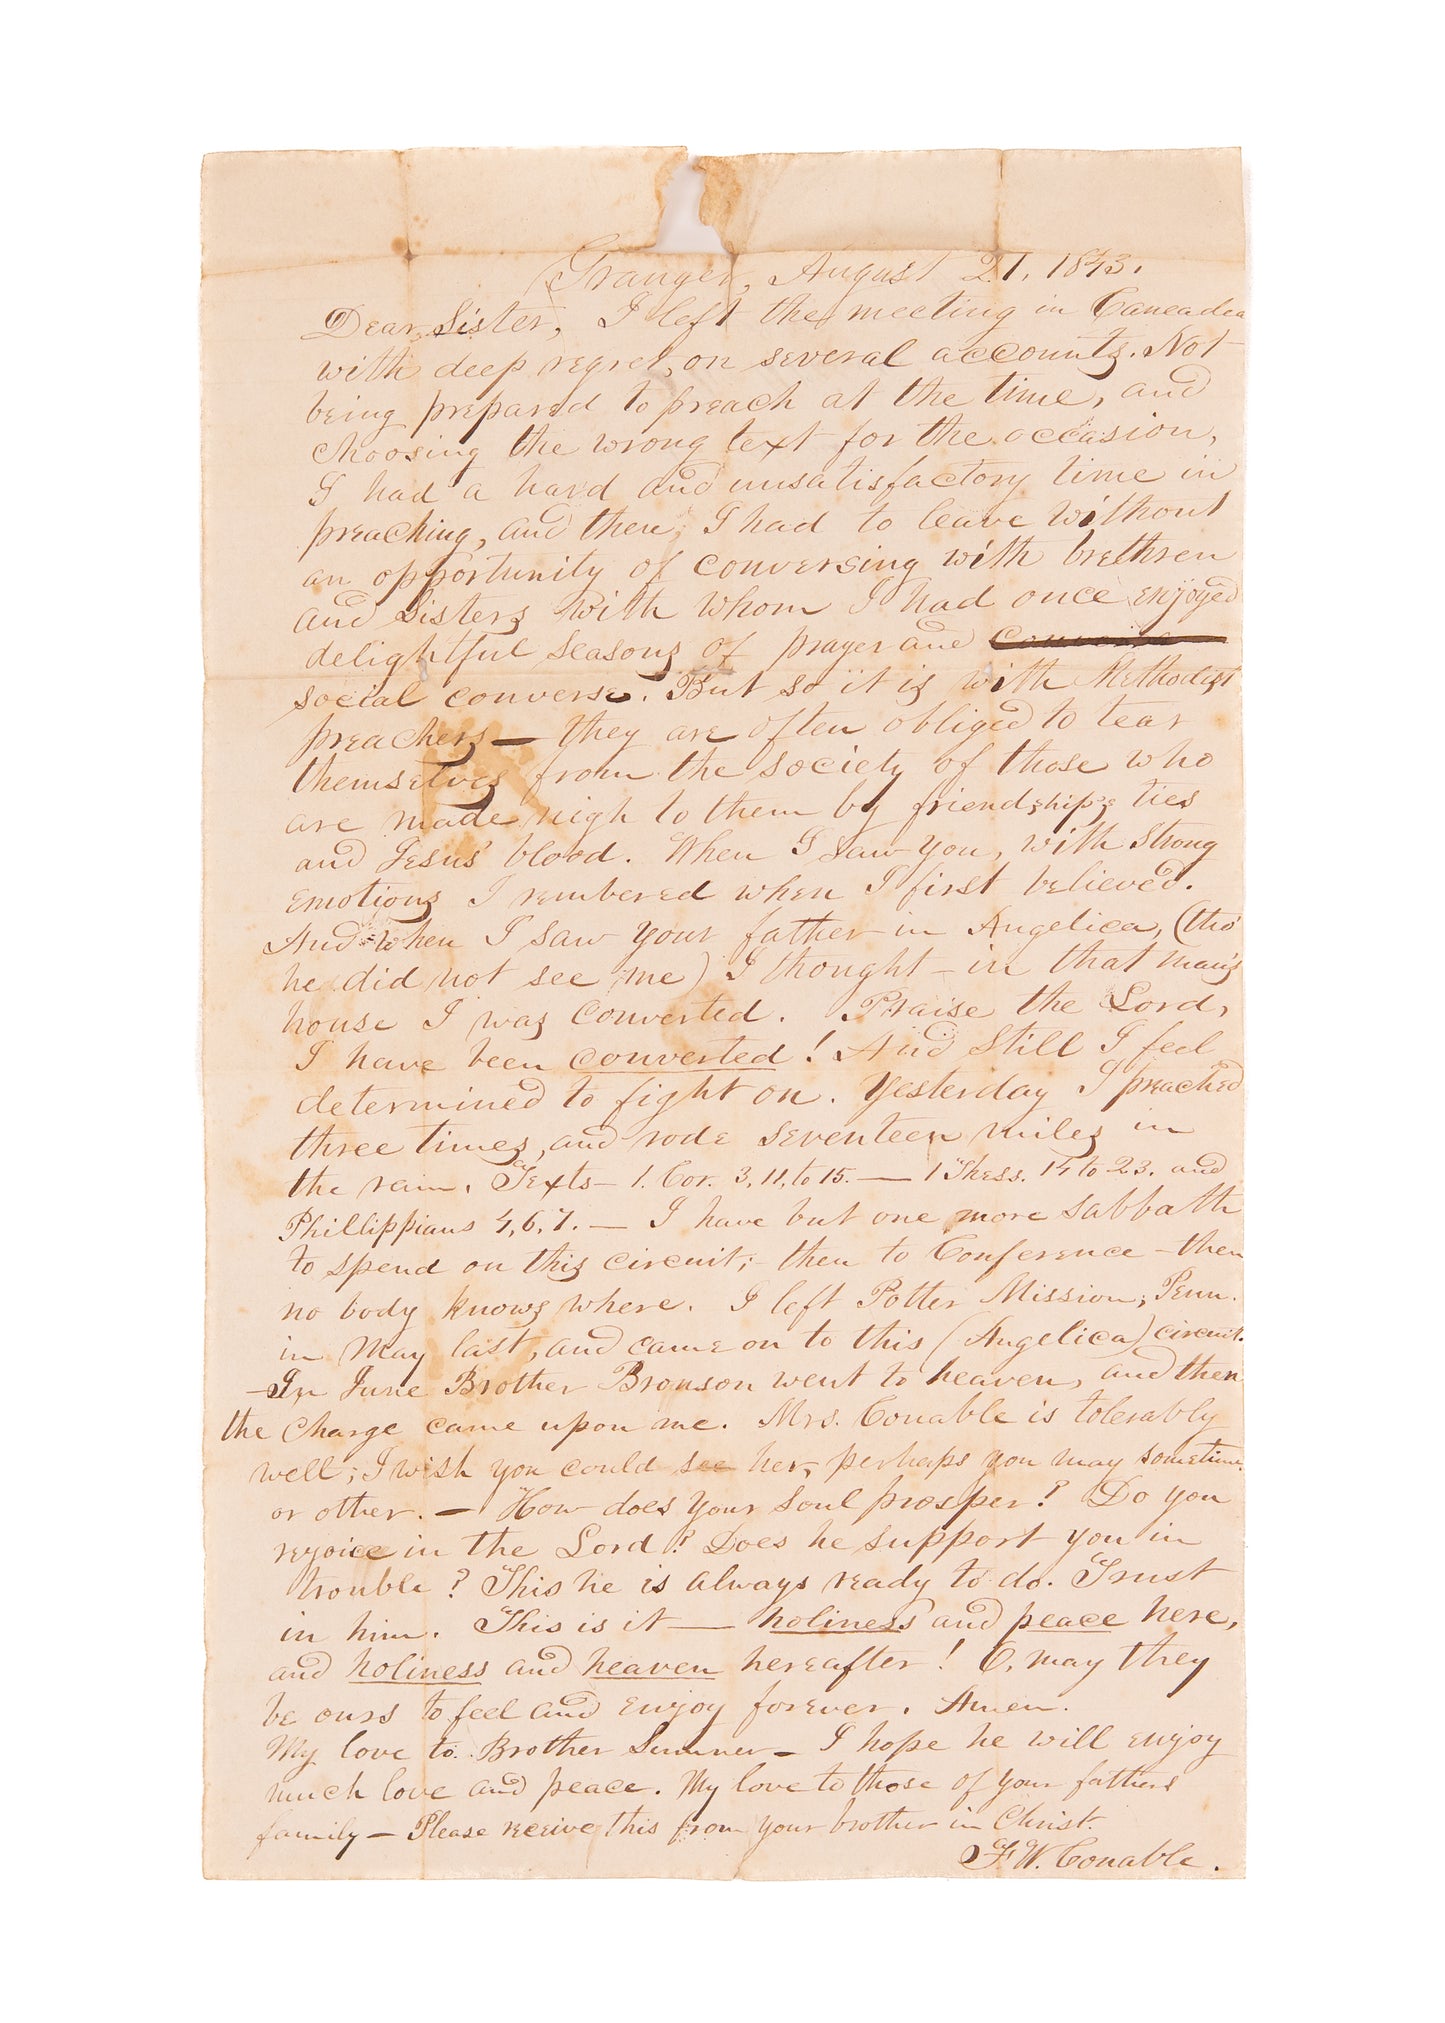 Granger, August 21, 1843.
Dear Sister, I left the meeting in Caneadea
with deep regret, on several accounts. Not
being prepared to preach at the time, and
choosing the wrong text for the occasion,
I had a hard and unsatisfactory time in
preaching, and then, I had to leave without
an opportunity of conversing with brethren
and sisters with whom I had once enjoyed
delightful seasons of prayer and
social converse. But so it is with Methodist
preachers — they are often obliged to tear
themselves from the society of those who
are made nigh to them by friendship's ties
and Jesus' blood. When I saw you, with strong
emotions I rembered when I first believed.
And when I saw your father in Angelica, (tho'
he did not see me) I thought - in that man's
house I was converted. Praise the Lord,
I have been converted! And still I feel
determined to fight on. Yesterday I preached
three times, and rode seventeen miles in
the rain. Texts — 1. Cor. 3, 11, to 15. — 1 Thess. 14 to 23. and
Phillippians 4, 6, 7. — I have but one more sabbath
to spend on this circuit; - then to Conference - then
no body knows where. I left Potter Mission, Penn.
in May last, and came on to this (Angelica) circuit.
- In June Brother Bronson went to heaven, and then
the charge came upon me. Mrs. Conable is tolerably
well; I wish you could see her, perhaps you may sometime
or other. — How does your soul prosper? Do you
rejoice in the Lord? Does he support you in
trouble? This he is always ready to do. Trust
in him. This is it — holiness and peace here,
and holiness and heaven hereafter! O, may they
be ours to feel and enjoy forever. Amen.
My love to Brother Sumner — I hope he will enjoy
much love and peace. My love to those of your fathers
family — Please receive this from your brother in Christ.
F. W. Conable.